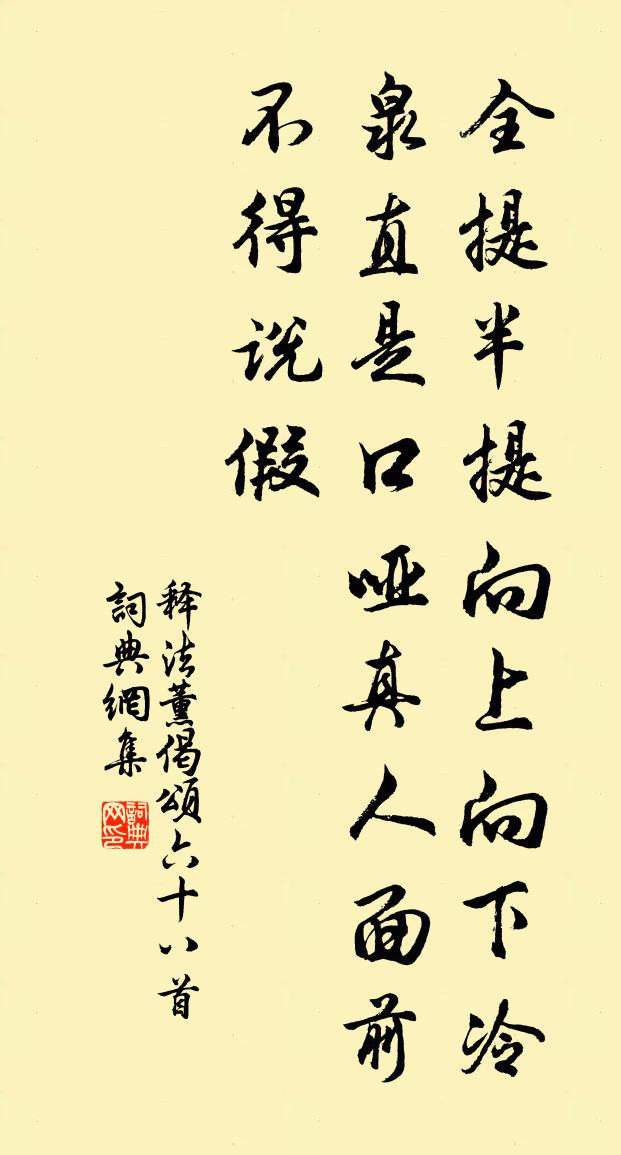 全提半提向上向下冷
泉直是口哑真人面前
不得说假
释法薰偈颂六十八首
詞典網集
詞典网印